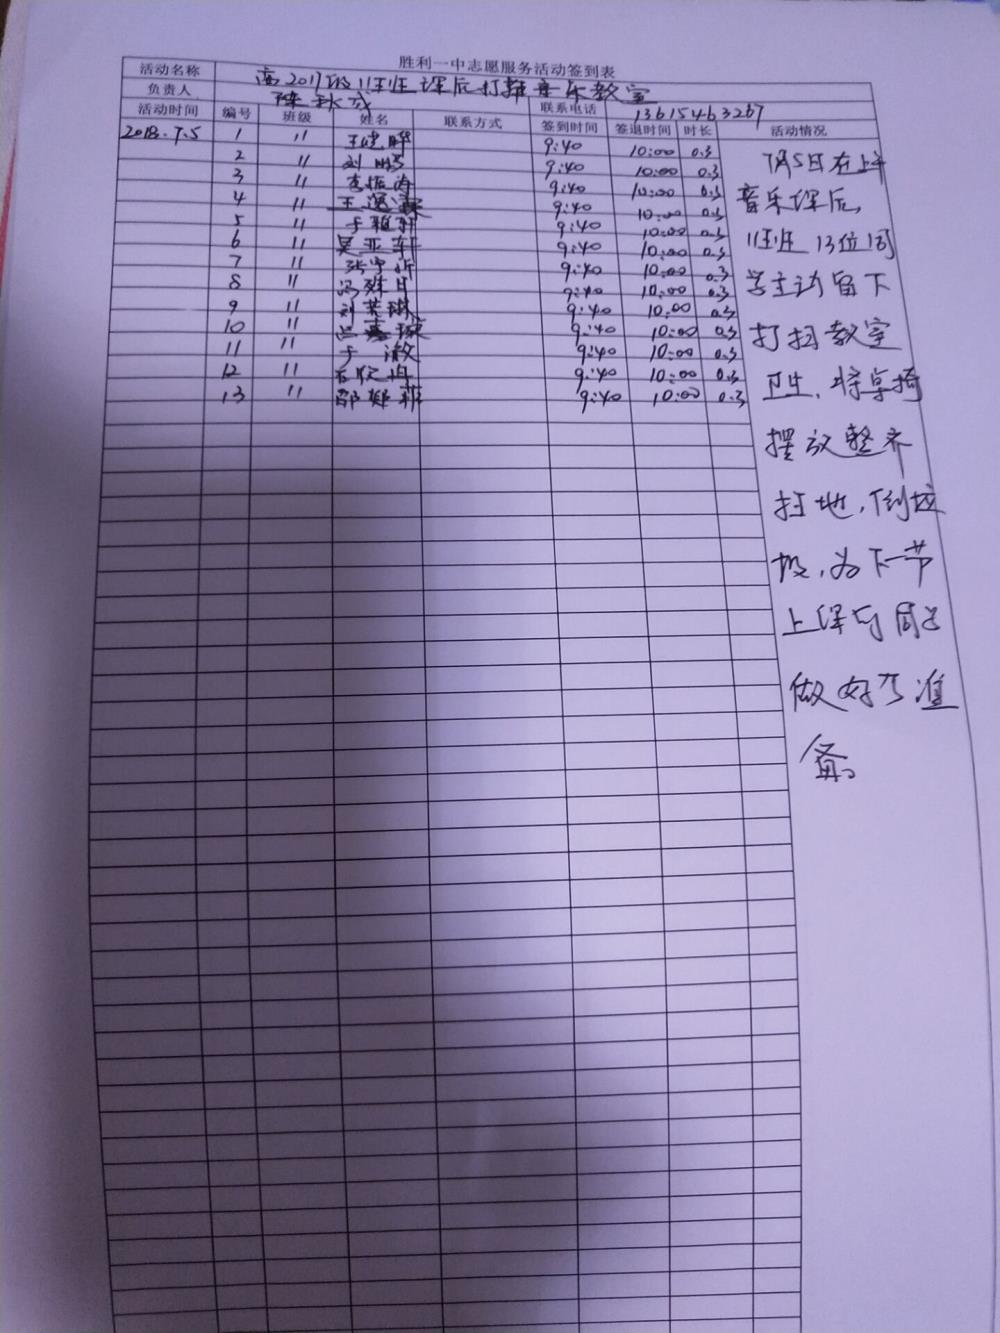 胜利一中志愿服务活动签到表
活动名称 高2017级11班班课后打扫音乐教室
负责人 陈秋成 联系电话 13615463267
活动时间 编号 班级 姓名 联系方式 签到时间 签退时间 时长 活动情况
2018.7.5 1 11 9:40 10:00 0.3
2 11 刘鹏 9:40 10:00 0.3
3 11 李振海 9:40 10:00 0.3
4 11 9:40 10:00 0.3
5 11 于雅轩 9:40 10:00 0.3
6 11 吴亚轩 9:40 10:00 0.3
7 11 张宇沂 9:40 10:00 0.3
8 11 冯 9:40 10:00 0.3
9 11 刘芙琳 9:40 10:00 0.3
10 11 吕嘉 9:40 10:00 0.3
11 11 于澈 9:40 10:00 0.3
12 11 石欣冉 9:40 10:00 0.3
13 11 邵 菲 9:40 10:00 0.3
7月5日在上午
音乐课后,
11班班13位同
学主动留下
打扫教室
卫生,将桌椅
摆放整齐
扫地,倒垃
圾,为下一节
上课的同学
做好了准
备。